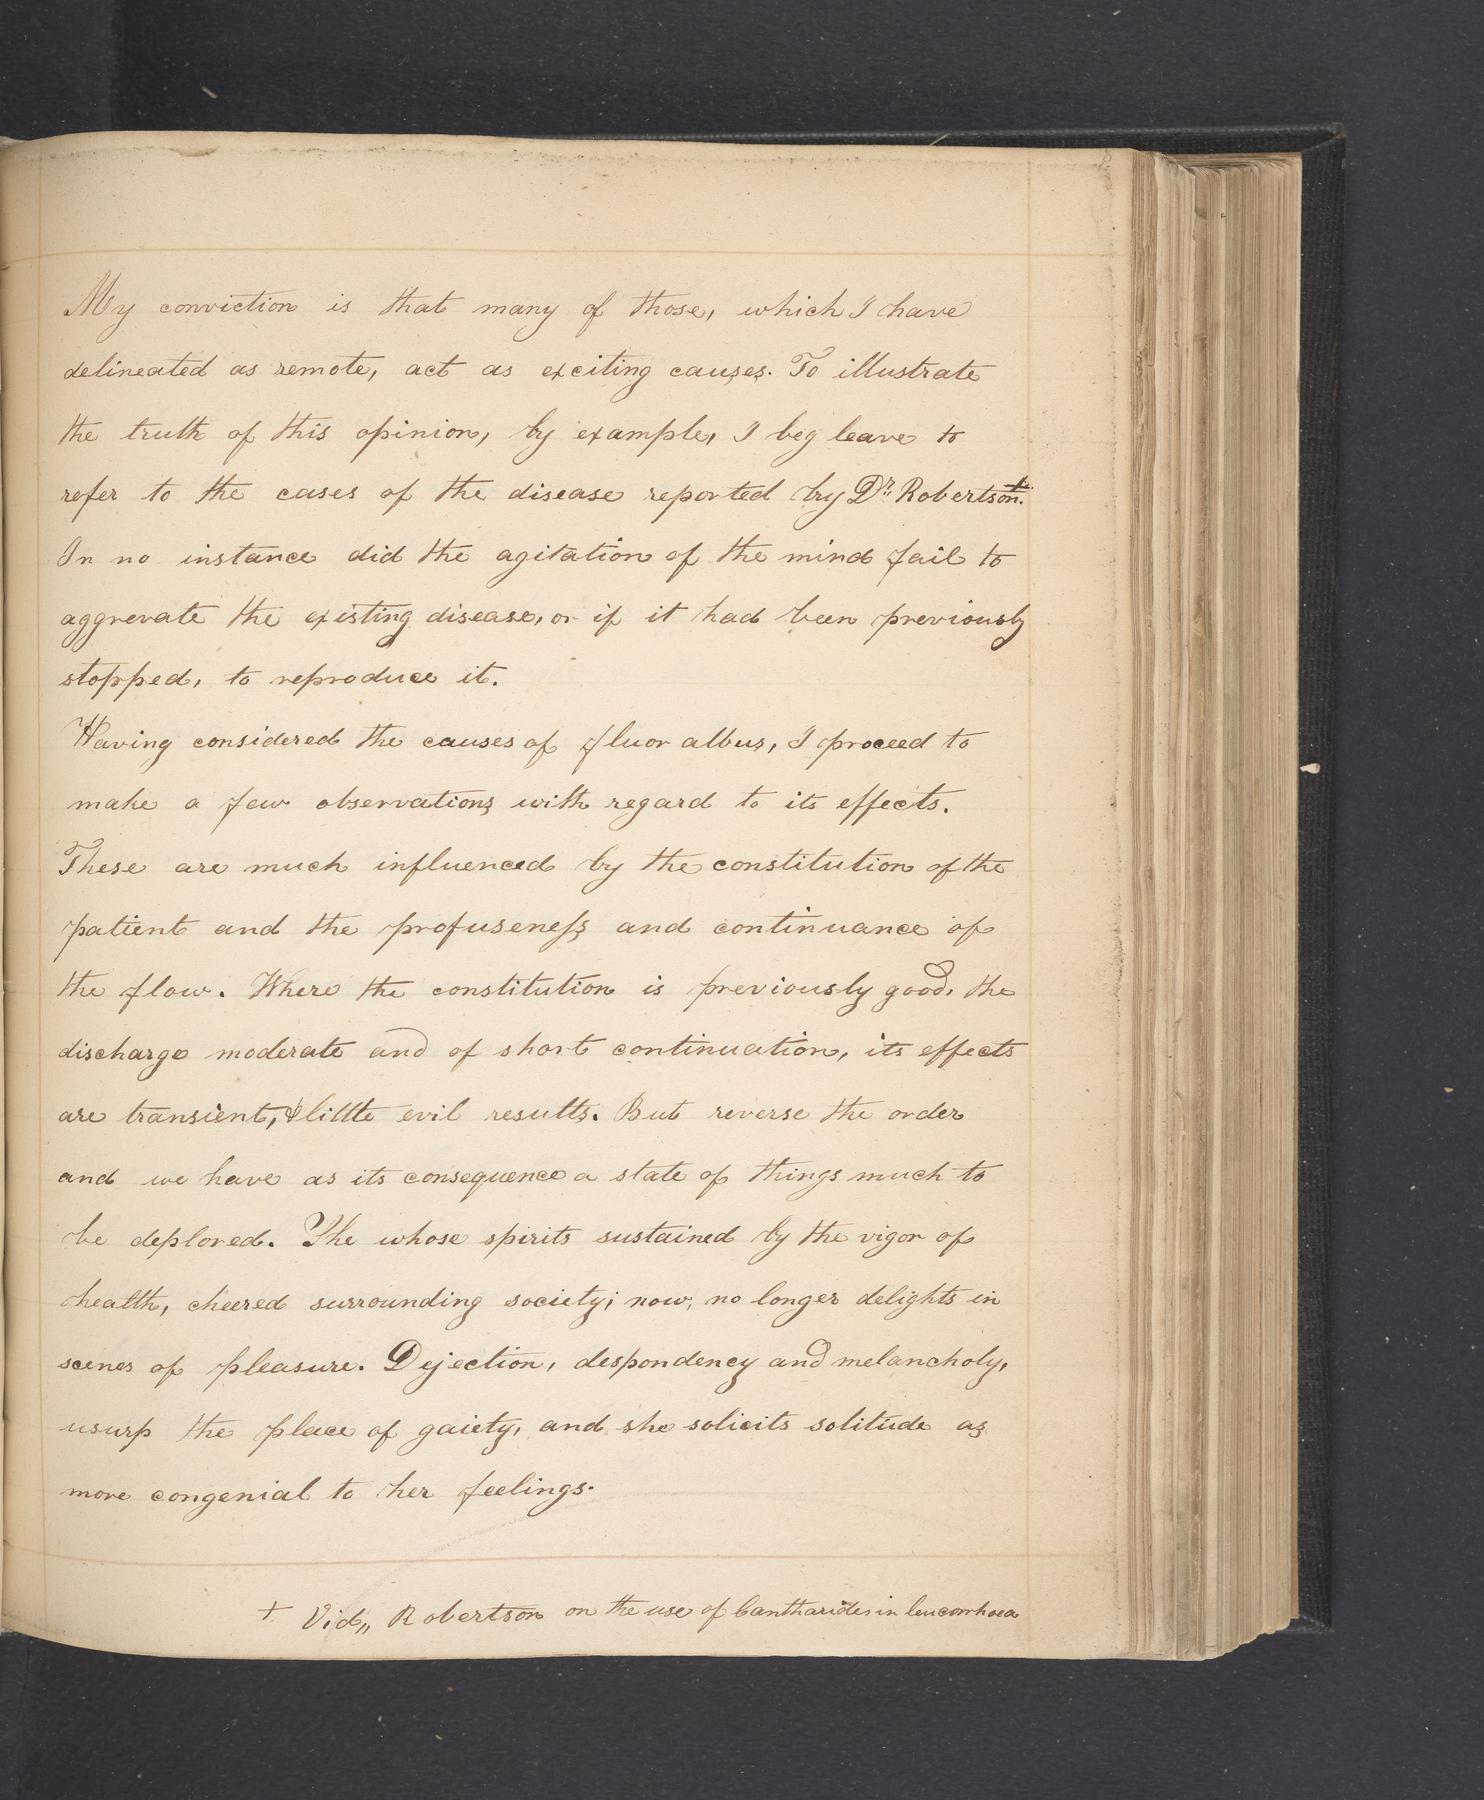 My conviction is that many of those, which I have
delineated as remote, act as exciting causes. To illustrate
the truth of this opinion, by example, I beg leave to
refer to the cases of the disease reported by Dr. Robertson.+
In no instance did the agitation of the mind fail to
aggrevate the existing disease, or if it had been previously
stopped, to reproduce it.
Having considered the causes of fluor albus, I proceed to
make a few observations with regard to its effects.
These are much influenced by the constitution of the
patient and the profuseneſs and continuance of
the flow. Where the constitution is previously good, the
discharge moderate and of short continuation, its effects
are transient, & little evil results. But reverse the order
and we have as its consequence a state of things much to
be deplored. She whose spirits sustained by the vigor of
health, cheered surrounding society; now, no longer delights in
scenes of pleasure. Dejection, despondency and melancholy,
usurp the place of gaiety, and she solicits solitude as
more congenial to her feelings.
+ Vid,, Robertson on the use of Cantharides in leucorrhoea